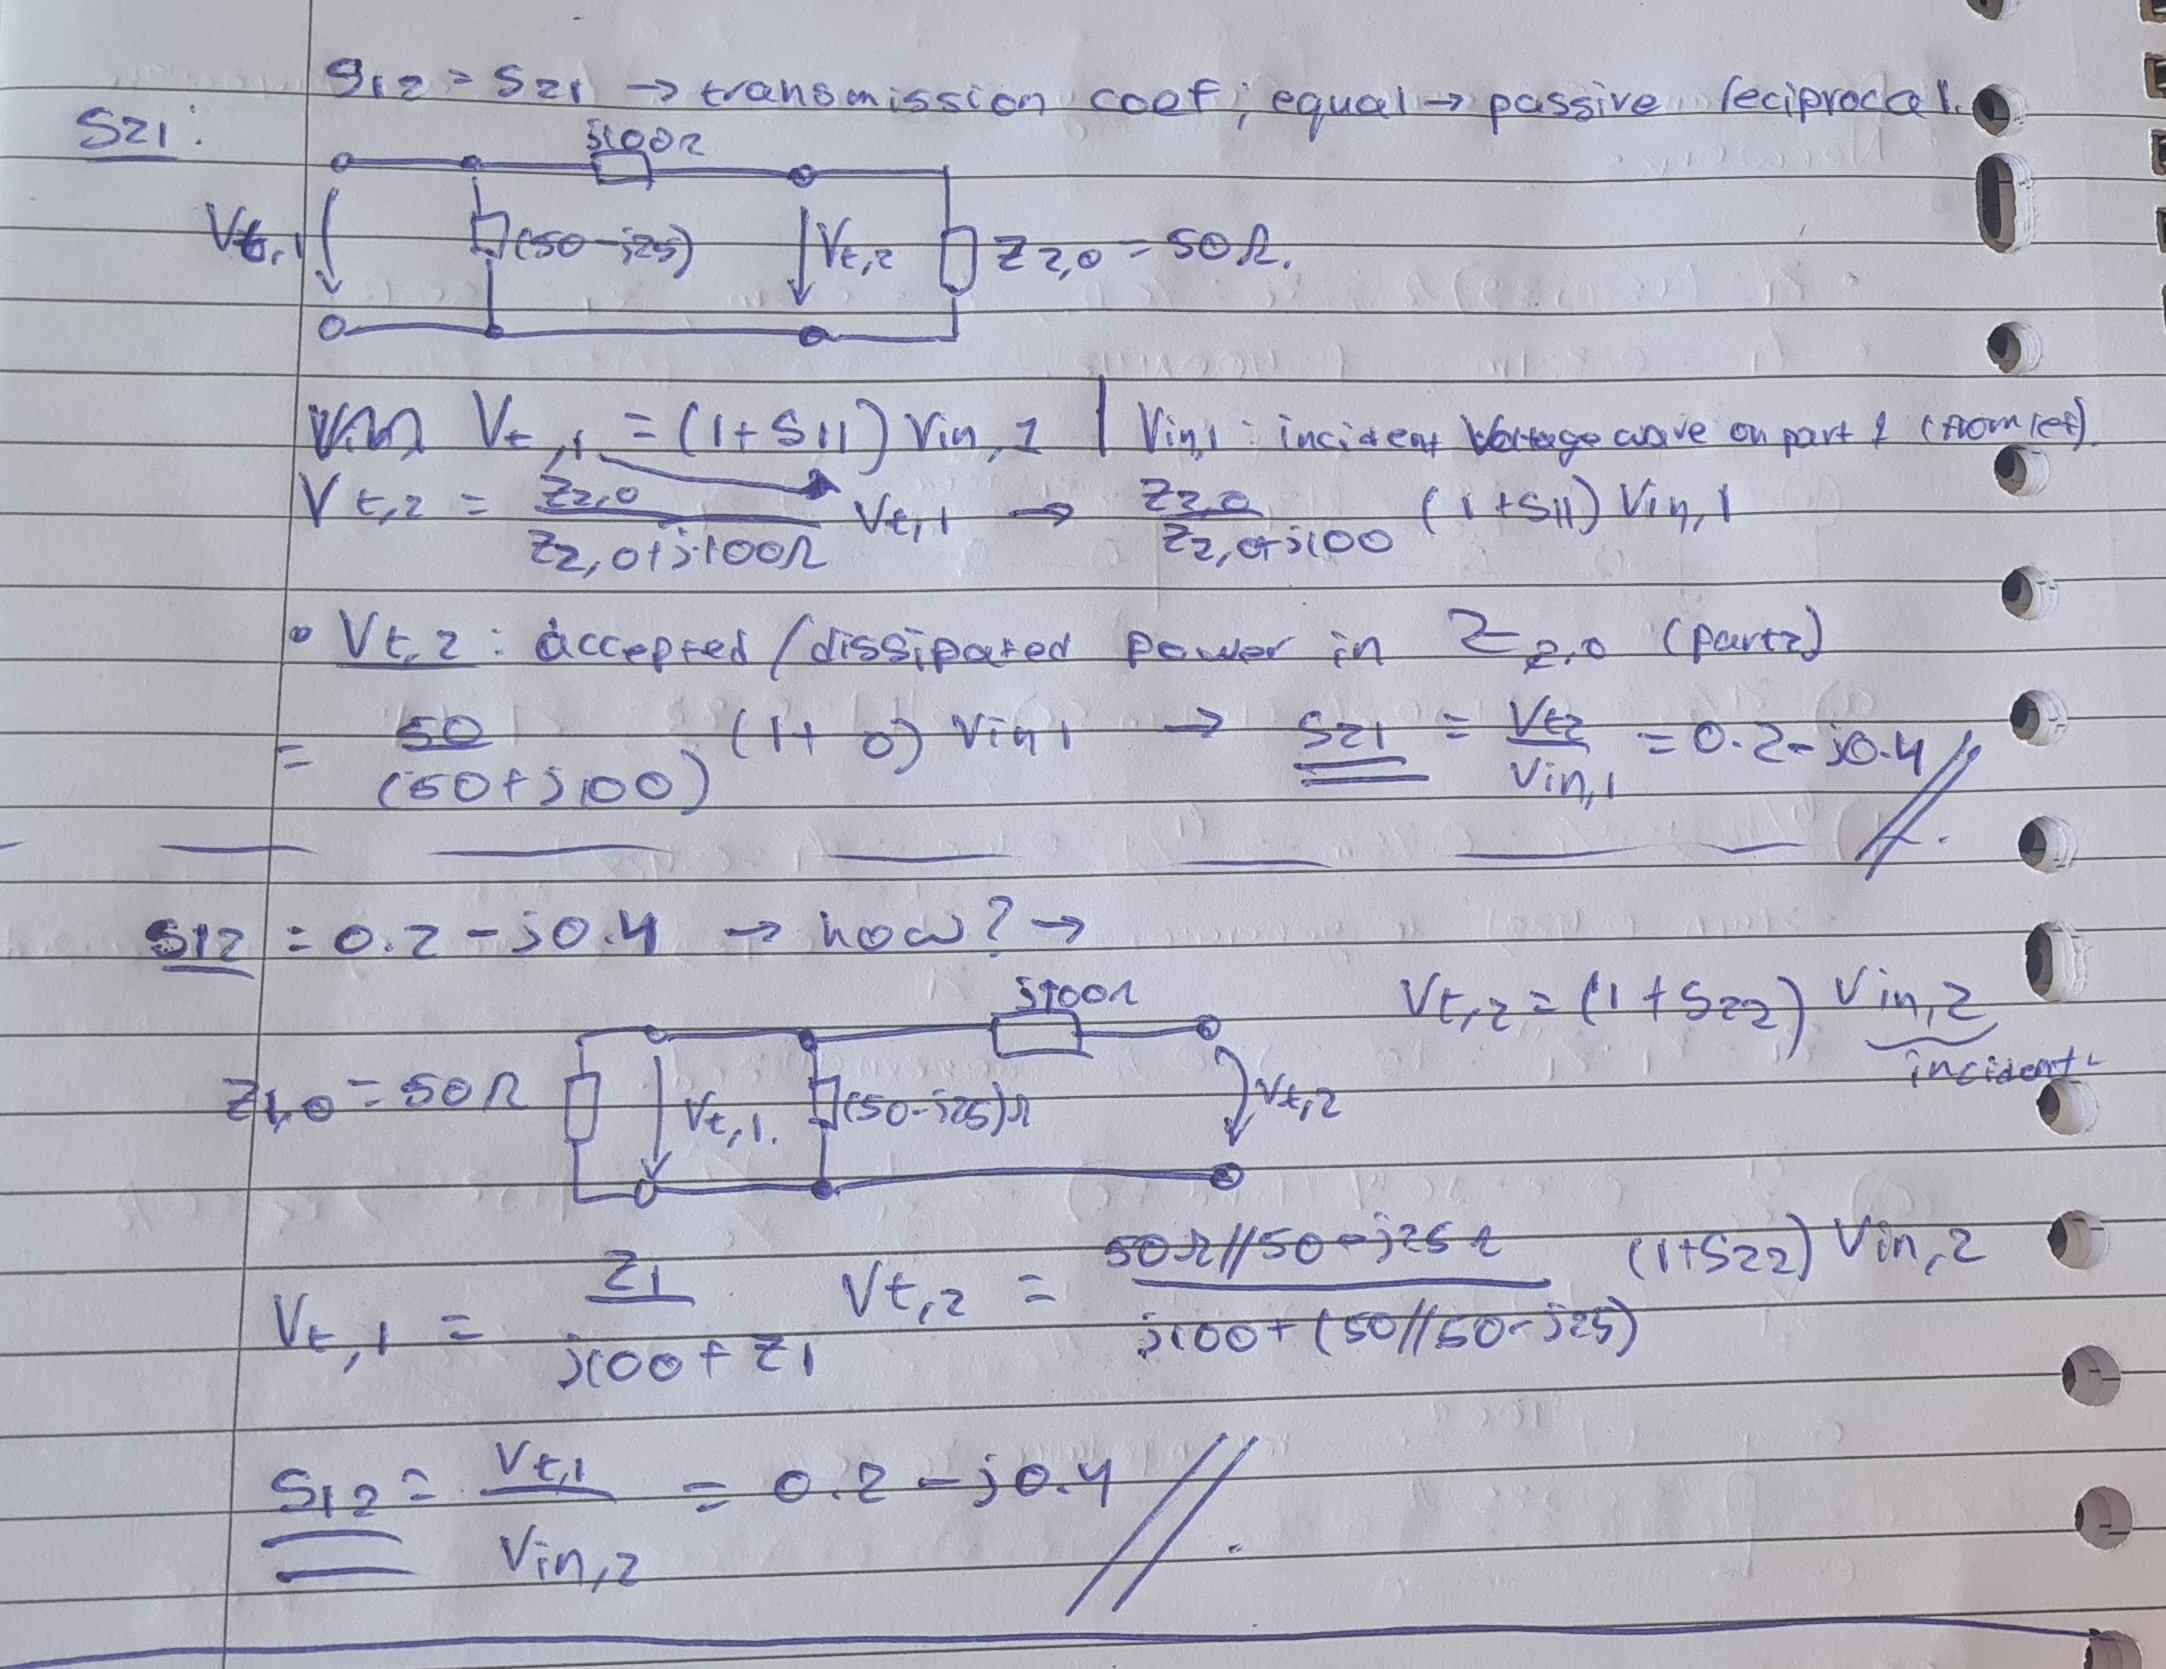 S12 = S21 → transmission coef; equal → passive reciprocal.
S21:
j100Ω
Vt,1
(50-j25)
Vt,2
Z2,0 = 50Ω.
Vt,1 = (1+S11) Vin,1 | Vin,1: incident Voltage wave on port 1 (from left).
Vt,2 = Z2,0 / Z2,0+j·100Ω Vt,1 → Z2,0 / Z2,0+j100 (1+S11) Vin,1
• Vt,2: accepted/dissipated power in Z2,0 (port2)
= 50 / (50+j100) (1+0) Vin1 → S21 = Vt2 / Vin,1 = 0.2-j0.4 //
S12 = 0.2-j0.4 → how? →
j100Ω
Vt,2 = (1+S22) Vin,2
incident.
Z1,0 = 50Ω
Vt,1.
(50-j25)Ω
Vt,2
Vt,1 = Z1 / j100+Z1 Vt,2 = 50Ω//50-j25Ω / j100+(50//50-j25) (1+S22) Vin,2
S12 = Vt,1 / Vin,2 = 0.2-j0.4 //.